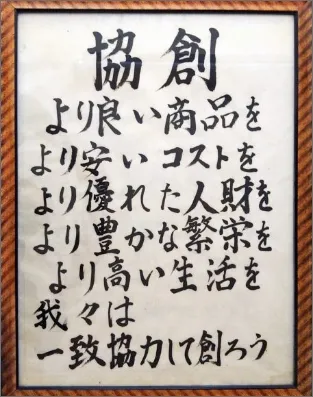 協創
より良い商品を
より安いコストを
より優れた人財を
より豊かな繁栄を
より高い生活を
我々は
一致協力して創ろう